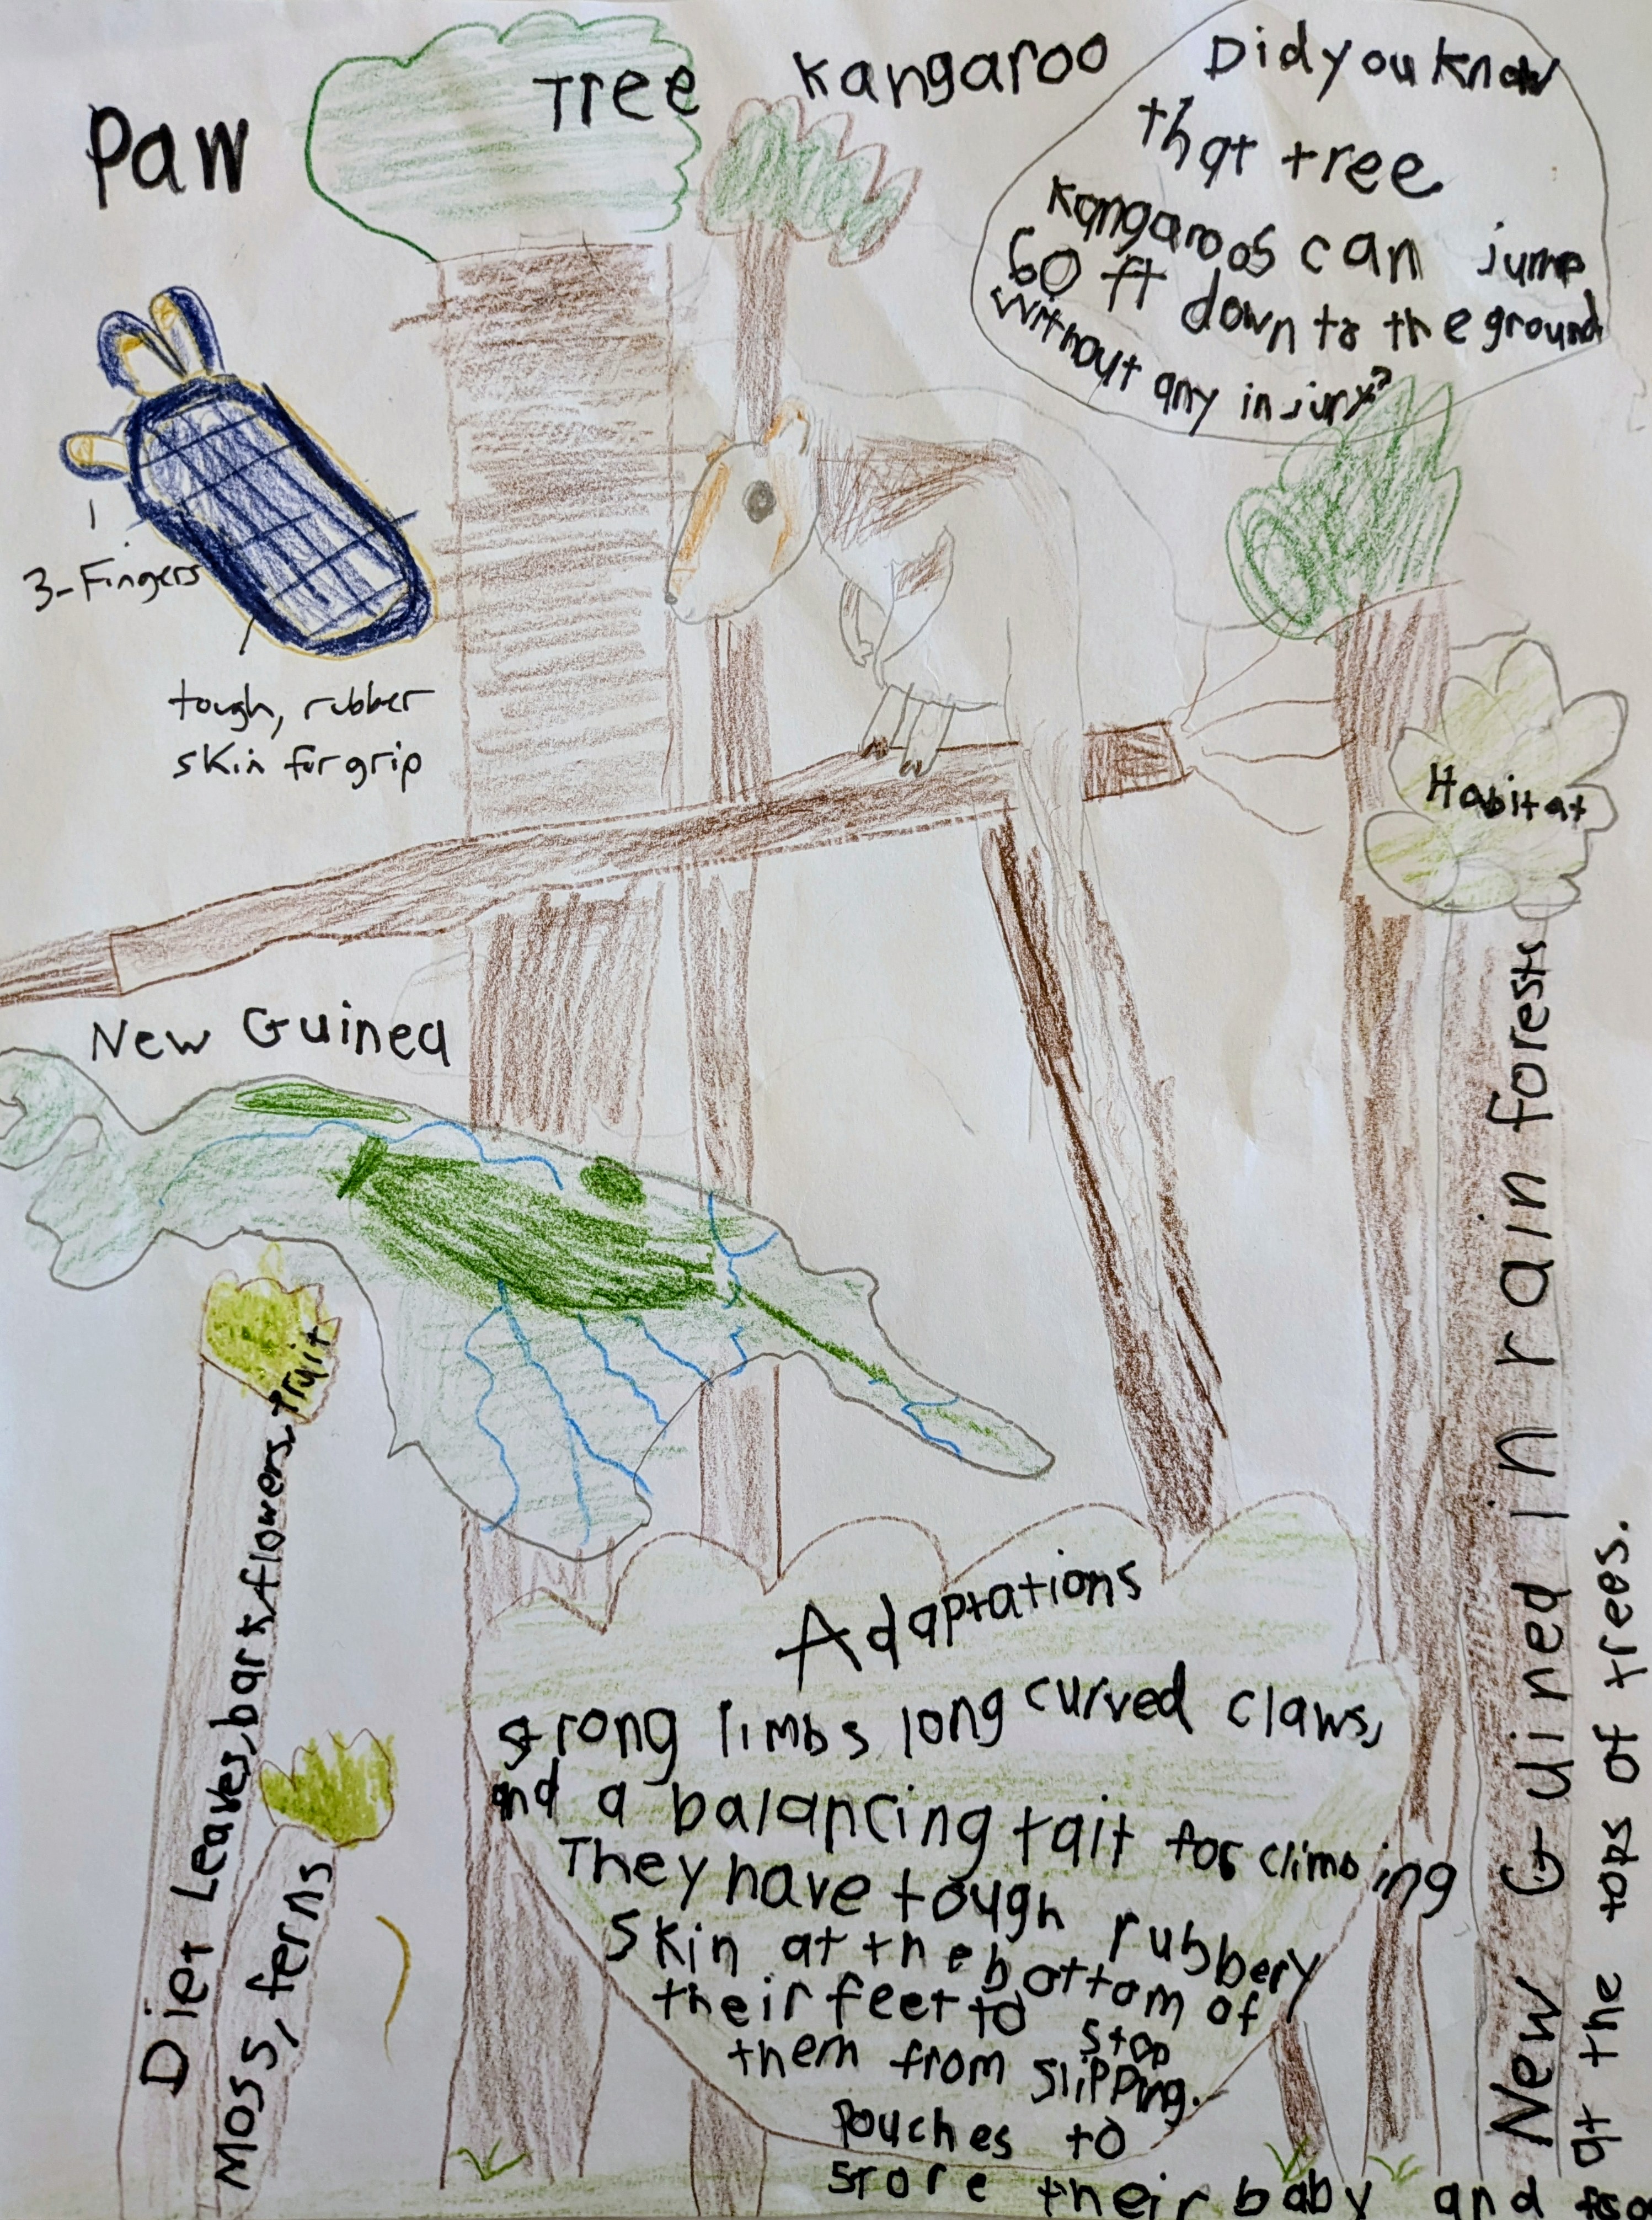 Tree Kangaroo
Paw
3-Fingers
tough, rubber
skin for grip
Did you know
that tree
kangaroos can jump
60 ft down to the ground
without any injury?
Habitat
New Guinea in rain forests
at the tops of trees.
New Guinea
Diet Leaves, bark, flowers, fruit
Moss, ferns
Adaptations
strong limbs, long curved claws,
and a balancing tait for climbing
They have tough rubbery
skin at the bottom of
their feet to stop
them from slipping.
Pouches to
store their baby and